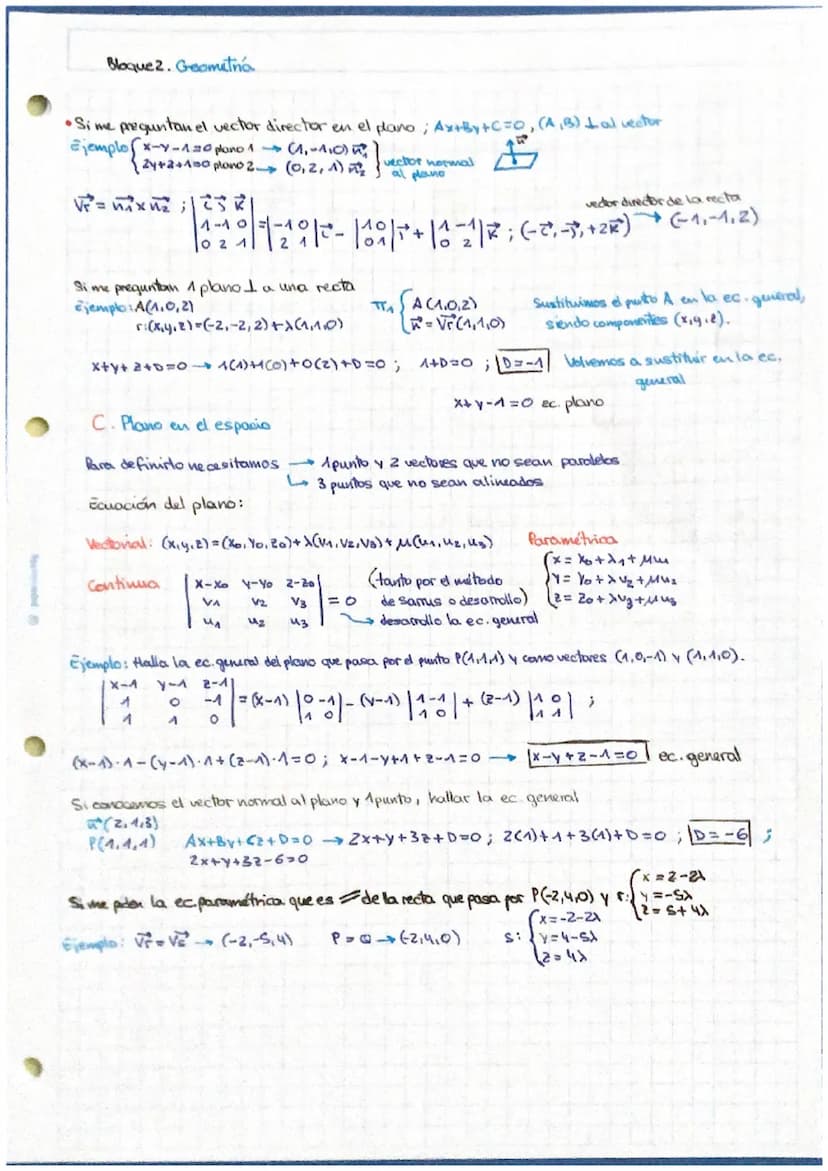 Bloque 2. Geometría
• Si me preguntan el vector director en el plano ; Ax+By+C=0, (A,B) ⊥ al vector
Ejemplo { x-y-1=0 plano 1 → (1,-1,0) n₁→
2y+z+1=0 plano 2 → (0,2,1) n₂→ } vector normal al plano
n→
vector director de la recta
Vr→ = n₁→ x n₂→ ; | i→ j→ k→ | 1 -1 0 | 0 2 1 | = | -1 0 | 2 1 | i→ - | 1 0 | 0 1 | j→ + | 1 -1 | 0 2 | k→ ; (-i→, -j→, +2k→) → (-1,-1,2)
Si me preguntan 1 plano ⊥ a una recta
Ejemplo: A(1,0,2)
r:(x,y,z)=(-2,-2,2)+λ(1,1,0)
π₁ { A(1,0,2)
n→ = Vr→(1,1,0)
Sustituimos el punto A en la ec. general,
siendo componentes (x,y,z).
x+y+z+D=0 → 1(1)+1(0)+0(2)+D=0 ; 1+D=0 ; D=-1 Volvemos a sustituir en la ec.
general
x+y-1=0 ec. plano
C. Plano en el espacio
Para definirlo necesitamos → 1 punto y 2 vectores que no sean paralelos
↳ 3 puntos que no sean alineados
Ecuación del plano:
Vectorial: (x,y,z)=(x₀,y₀,z₀)+λ(v₁,v₂,v₃)+μ(u₁,u₂,u₃)
Paramétrica
{ x = x₀+λ₁+μu₁
y = y₀+λv₂+μu₂
z = z₀+λv₃+μu₃
Continua | x-x₀ y-y₀ z-z₀ | v₁ v₂ v₃ | u₁ u₂ u₃ | = 0
(tanto por el método
de Sarrus o desarrollo)
→ desarrollo la ec. general
Ejemplo: Halla la ec. general del plano que pasa por el punto P(1,1,1) y como vectores (1,0,-1) y (1,1,0).
| x-1 y-1 z-1 | 1 0 -1 | 1 1 0 | = (x-1) | 0 -1 | 1 0 | - (y-1) | 1 -1 | 1 0 | + (z-1) | 1 0 | 1 1 | ;
(x-1)·1-(y-1)·1+(z-1)·1=0 ; x-1-y+1+z-1=0 → x-y+z-1=0 ec. general
Si conocemos el vector normal al plano y 1 punto, hallar la ec. general
n→(2,1,3)
P(1,1,1) Ax+By+Cz+D=0 → 2x+y+3z+D=0 ; 2(1)+1+3(1)+D=0 ; D=-6 ;
2x+y+3z-6=0
Si me piden la ec paramétrica que es // de la recta que pasa por P(-2,4,0) y r: { x=2-2λ
y=-5λ
z=5+4λ
Ejemplo: Vr→ = Vs→ → (-2,-5,4) P=Q → (-2,4,0) s: { x=-2-2λ
y=4-5λ
z=4λ